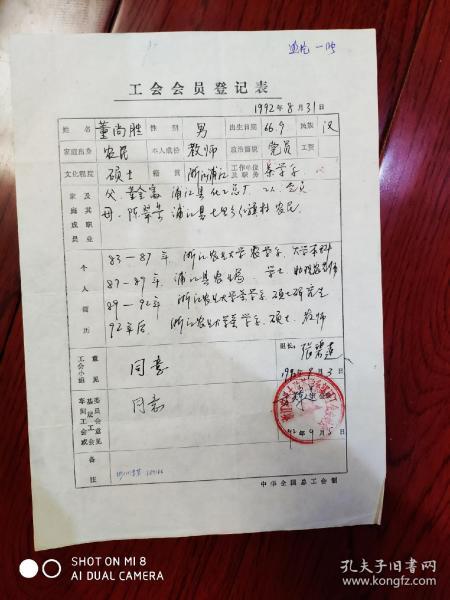 工会会员登记表
1992年8月31日
姓名 董尚胜 性别 男 出生日期 66.9 民族 汉
家庭出身 农民 本人成份 教师 政治面貌 党员 工资
文化程度 硕士 籍贯 浙江浦江 工作单位及职务 茶学系
家庭成员及其职业
父: 董金富 浦江县化工总厂 工人 党员
母: 陈翠 浦江县七里乡 村 农民
个人简历
83—87年 浙江农业大学茶学系 大学本科
87—89年 浦江县农业局 学士
89—92年 浙江农业大学茶学系 硕士研究生
92年后 浙江农业大学茶学系 硕士 教师
工会小组意见 同意 组长:
车间工会或基层工会委员会意见 同意
92年9月5
备注
中华全国总工会制
SHOT ON MI 8
AI DUAL CAMERA
孔夫子旧书网
www.kongfz.com